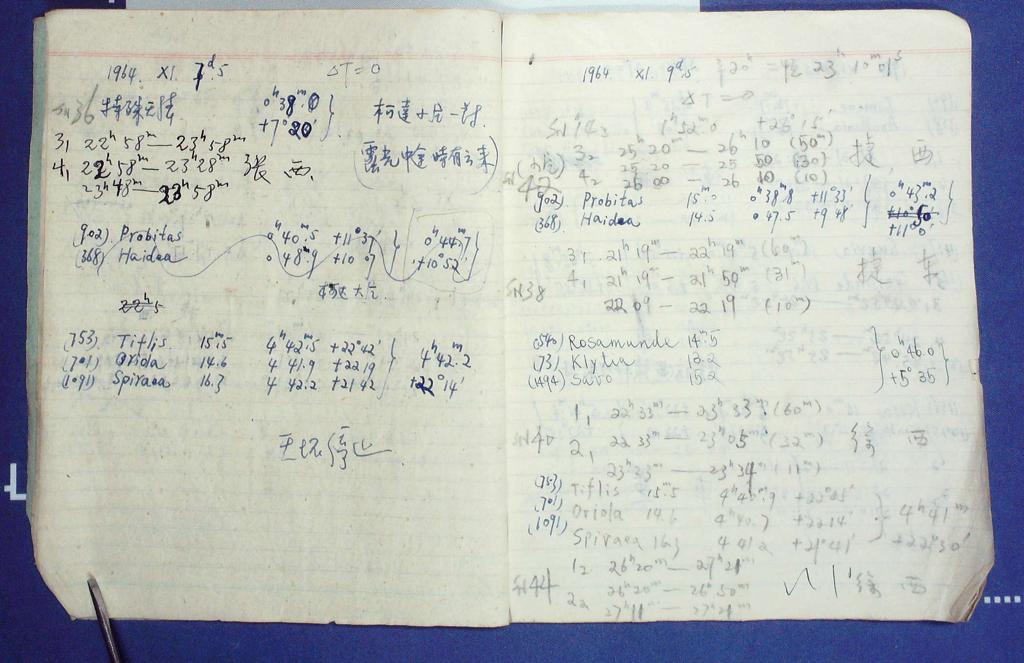 1964. XI. 7ᵈ.5 ΔT=0
SN36 0ʰ38ᵐ.0
+7°20'
3, 22ʰ58ᵐ — 23ʰ58ᵐ
4, 22ʰ58ᵐ — 23ʰ28ᵐ 張 西.
23ʰ48ᵐ — 23ʰ58ᵐ
(902) Probitas 0ʰ40ᵐ.5 +11°37' 0ʰ44ᵐ.7
(368) Haidea 0 48.9 +10 07 +10°52'
22ʰ5
(753) Tiflis 15ᵐ.5 4ʰ42ᵐ.5 +22°42' 4ʰ42ᵐ.2
(701) Oriola 14.6 4 41.9 +22 19 +22°14'
(1091) Spiraea 16.3 4 42.2 +21 42
1964 XI 9ᵈ.5 23 10ᵐ 01ˢ
ΔT=0
1ʰ52ᵐ.0 +26°15'
3₂ 25ʰ20ᵐ — 26ʰ10 (50ᵐ) 捷 西
4₂ 25 20 — 25 50 (30)
26 00 — 26 10 (10)
SN42
(902) Probitas 15.ᵐ0 0ʰ38ᵐ.8 +11°33' 0ʰ43ᵐ.2
(368) Haidea 14.5 0 47.5 +9 48' +11°0'
3, 21ʰ19ᵐ — 22ʰ19ᵐ (60ᵐ) 捷 东
4, 21ʰ19ᵐ — 21ʰ50ᵐ (31ᵐ)
SN38 22 09 — 22 19 (10ᵐ)
(540) Rosamunde 14ᵐ.5 0ʰ46.0
(73) Klytia 12.2 +5° 35
(1494) Savo 15.2
1, 22ʰ33ᵐ — 23ʰ33ᵐ (60ᵐ)
SN40 2, 22 33ᵐ — 23ʰ05ᵐ (32ᵐ) 徐 西
23ʰ23ᵐ — 23ʰ34ᵐ (11ᵐ)
(753) Tiflis 15ᵐ.5 4ʰ41ᵐ
(701) Oriola 14.6 4ʰ40.7 +22 14' +22°30'
(1091) Spiraea 16.3 4 41.2 +21°41'
1₂ 26ʰ20ᵐ — 27ʰ21ᵐ
SN44 26ʰ20ᵐ — 26ʰ50ᵐ 徐 西
2₂ 27ʰ11ᵐ — 27ʰ21ᵐ